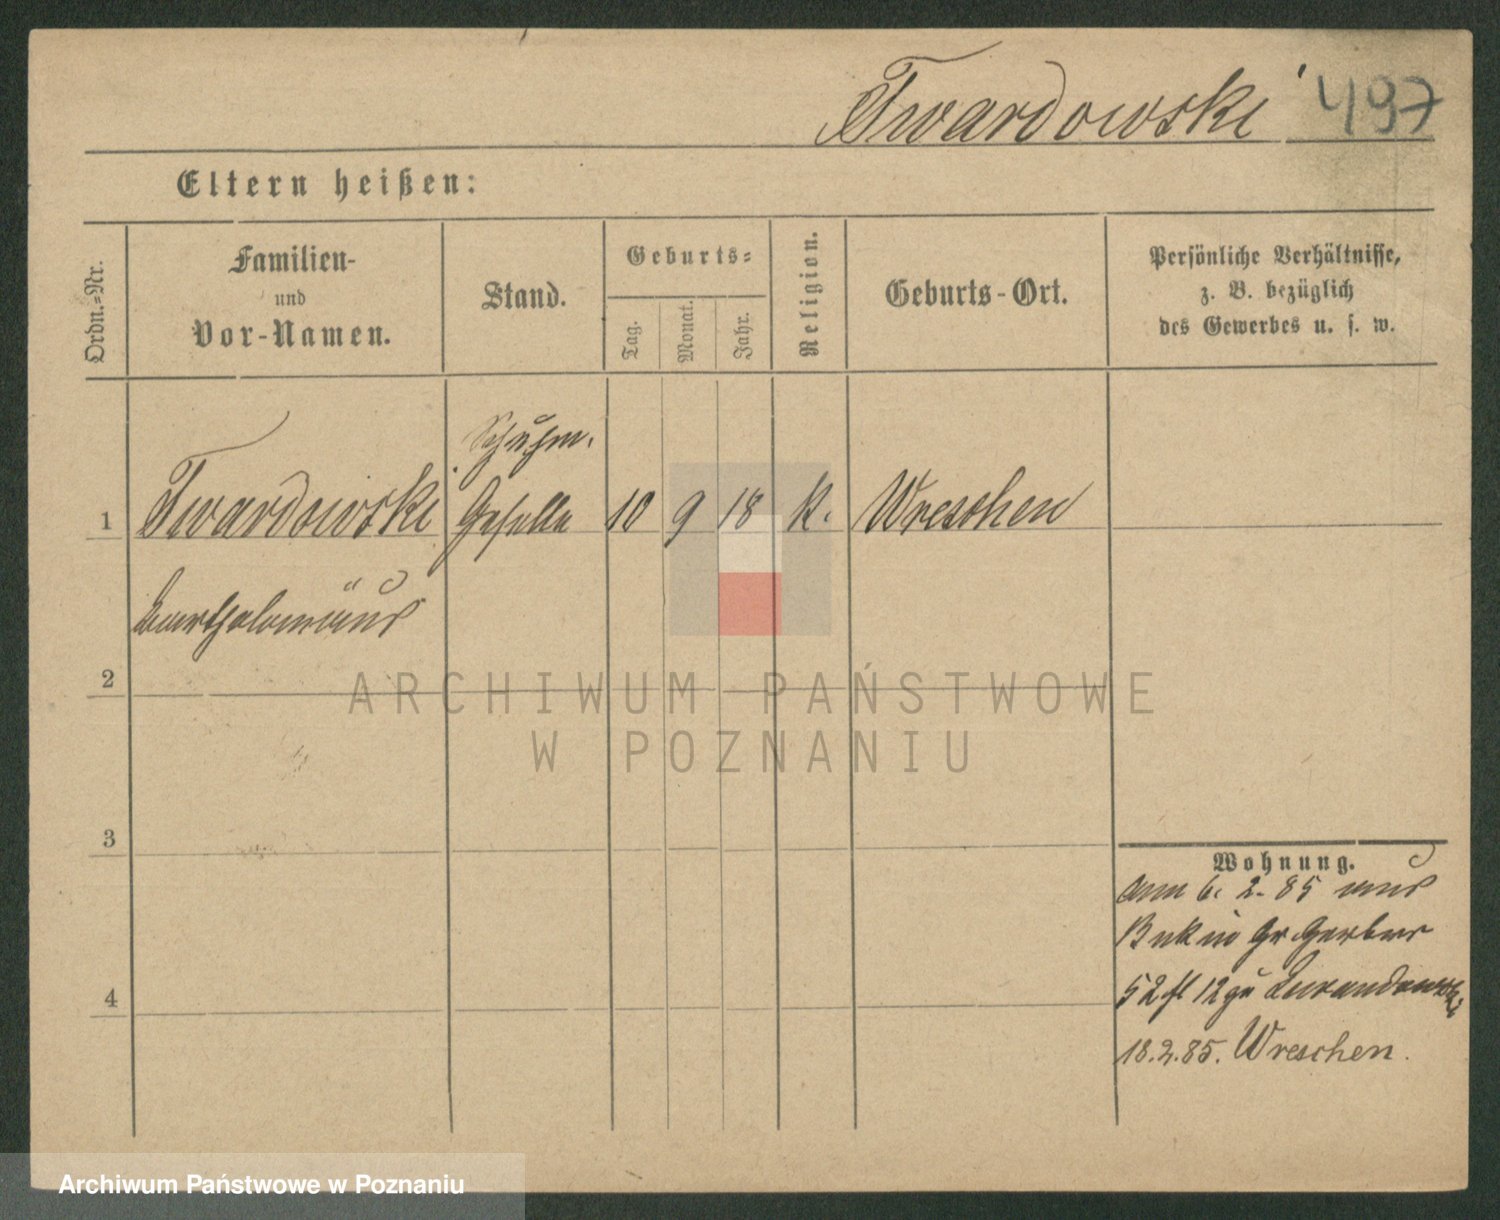 Twardowski 497
Eltern heißen:
Ordn.-Nr.
Familien-
und
Vor-Namen.
Stand.
Geburts-
Tag.
Monat.
Jahr.
Religion.
Geburts-Ort.
Persönliche Verhältnisse,
z. B. bezüglich
des Gewerbes u. s. w.
Schuhm.
1 Twardowski Geselle 10 9 18 K. Wreschen
Bartholomäus
2
ARCHIWUM PAŃSTWOWE
W POZNANIU
3
Wohnung.
am 6. 2. 85 aus
Buk in Gr. Gerber
52 fl 12 zu
4
18.2.85. Wreschen.
Archiwum Państwowe w Poznaniu